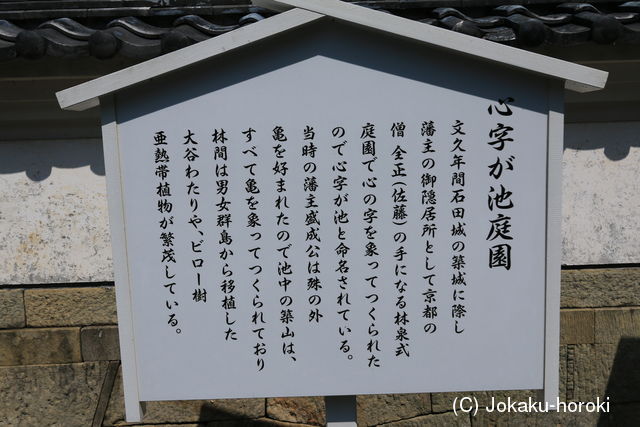 心字が池庭園
文久年間石田城の築城に際し
藩主の御隠居所として京都の
僧 全正(佐藤)の手になる林泉式
庭園で心の字を象ってつくられた
ので心字が池と命名されている。
当時の藩主盛成公は殊の外
亀を好まれたので池中の築山は、
すべて亀を象ってつくられており
林間は男女群島から移植した
大谷わたりや、ビロー樹
亜熱帯植物が繁茂している。
(C) Jokaku-horoki